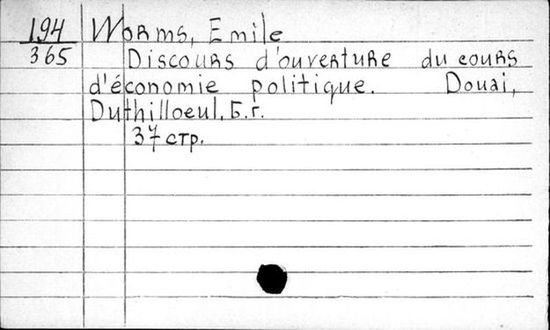 194 Worms, Emile
365 Discours d'ouverture du cours
d'économie politique. Douai,
Duthilloeul, Б.г.
37 стр.